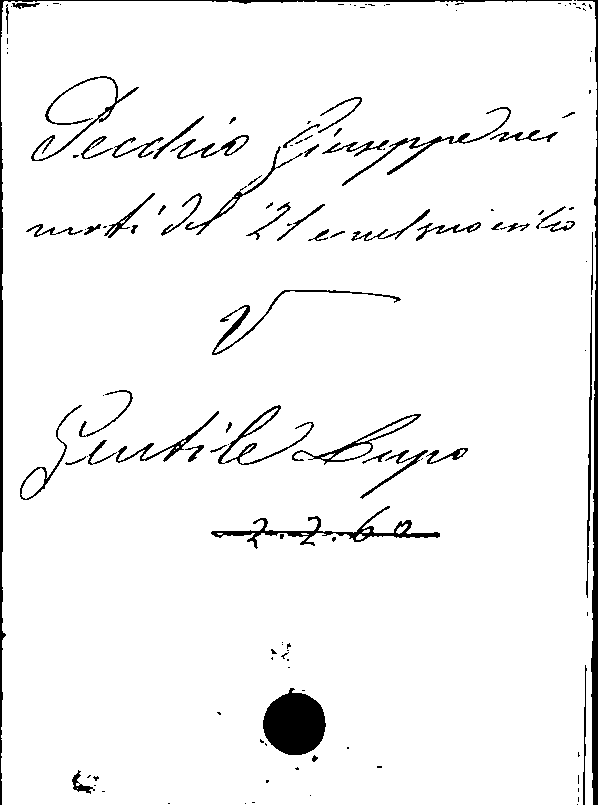 Pecchio Giuseppe nei
moti del '21 e nel suo esilio
V
Gentile Lupo
2.2.60